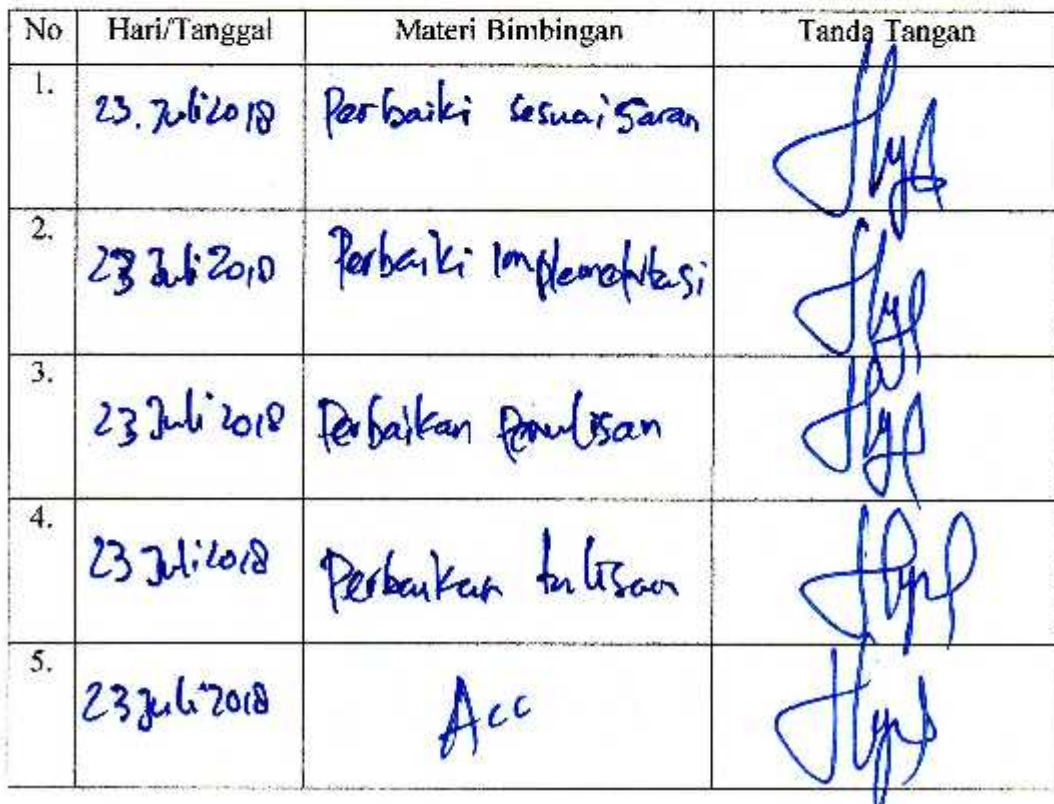 No Hari/Tanggal Materi Bimbingan Tanda Tangan
1. 23. Juli 2018 Perbaiki sesuai Saran
2. 23 Juli 2018 Perbaiki Implementasi
3. 23 Juli 2018 Perbaikan Penulisan
4. 23 Juli 2018 Perbaikan tulisan
5. 23 Juli 2018 Acc